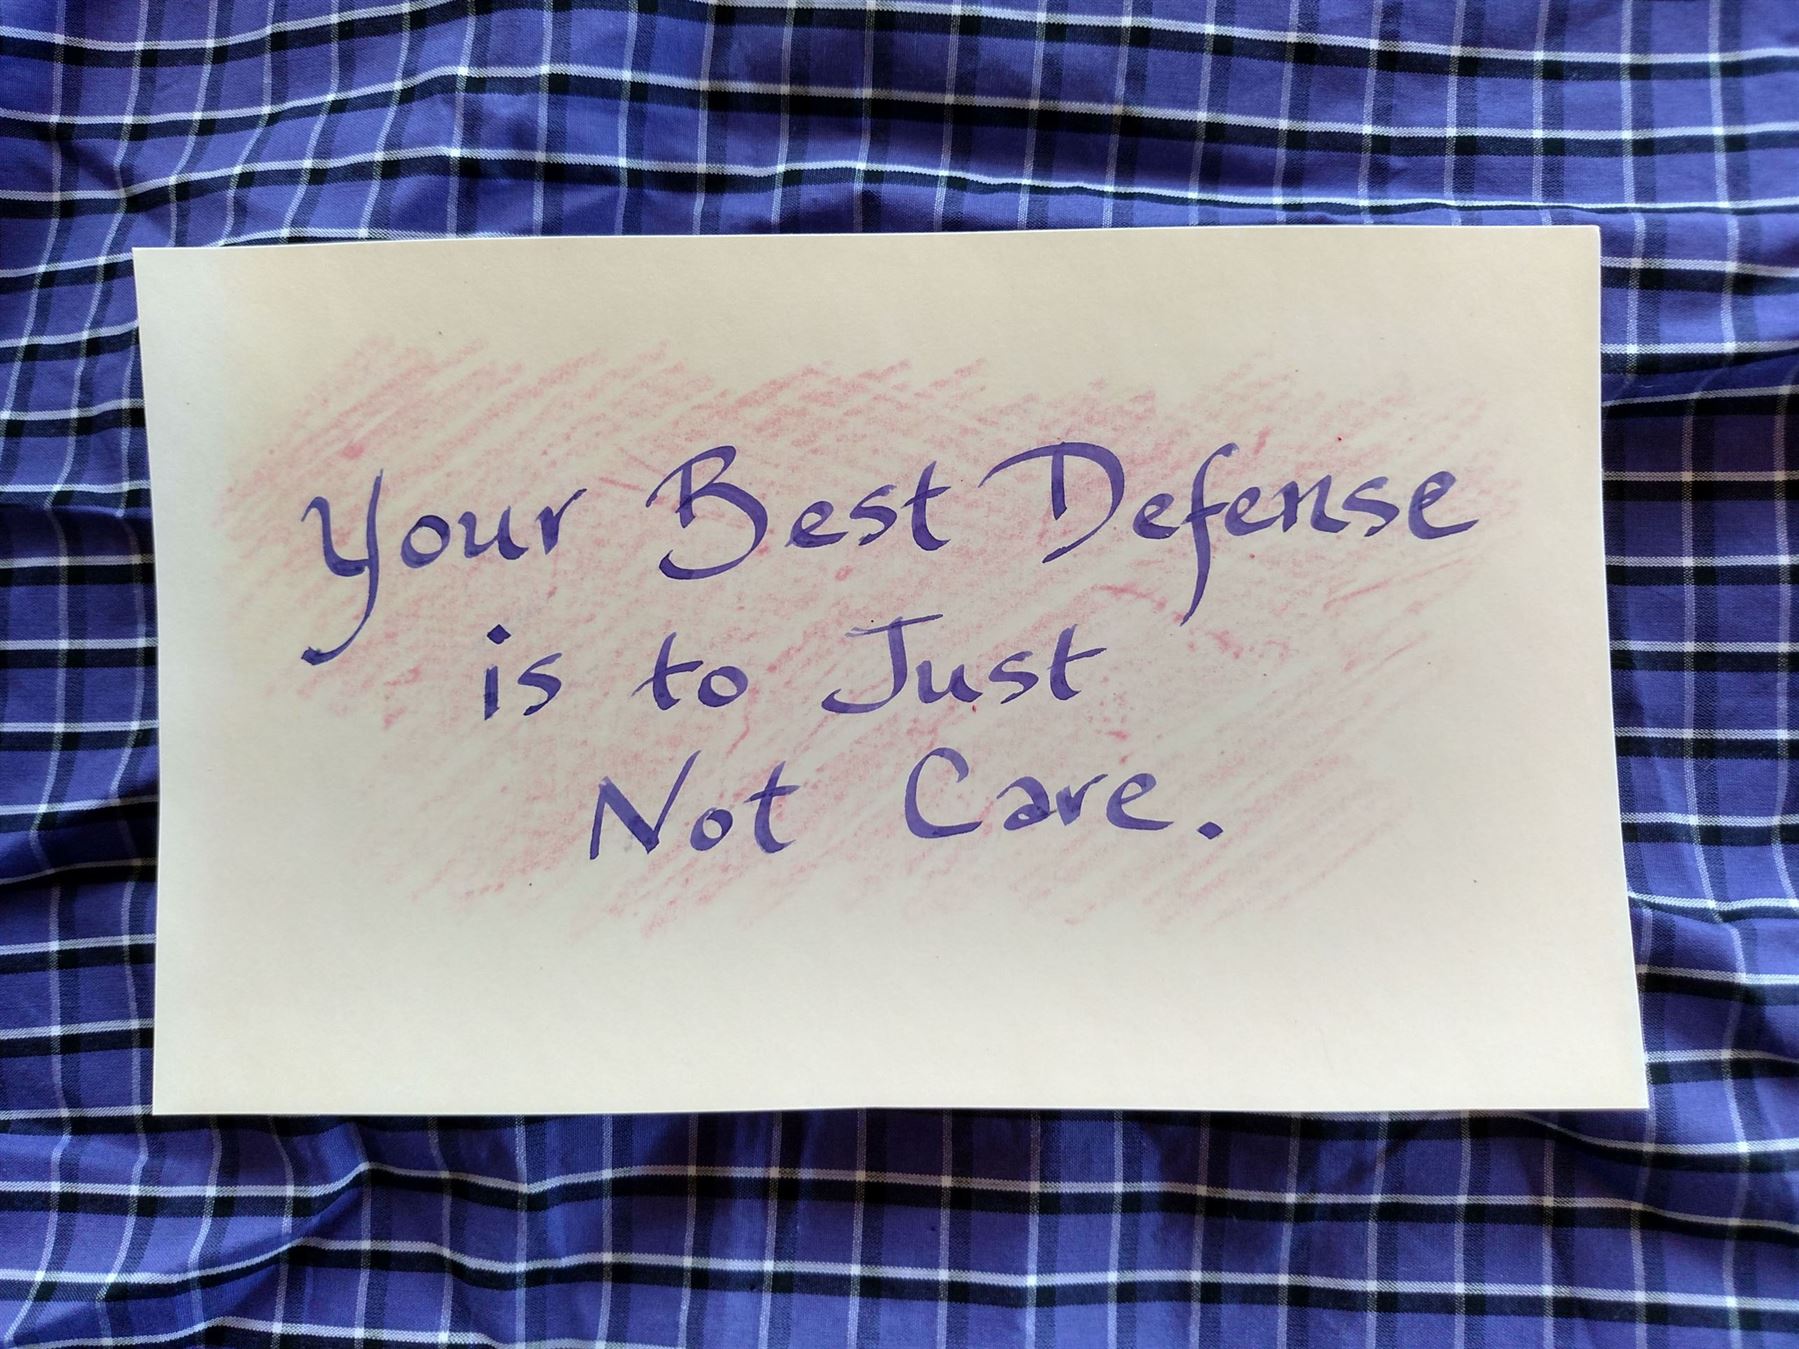 Your Best Defense
is to Just
Not Care.